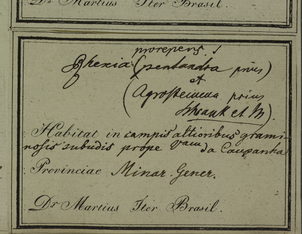 Dr Martius Iter Brasil.
prorepens
Rhexia (pentandra prius)
et
(Agrostemma prius
Schrank et M).
Habitat in campis altioribus grami-
nosis subudis prope da Campanha
Provinciae Minar. Gener.
Dr Martius Iter Brasil.